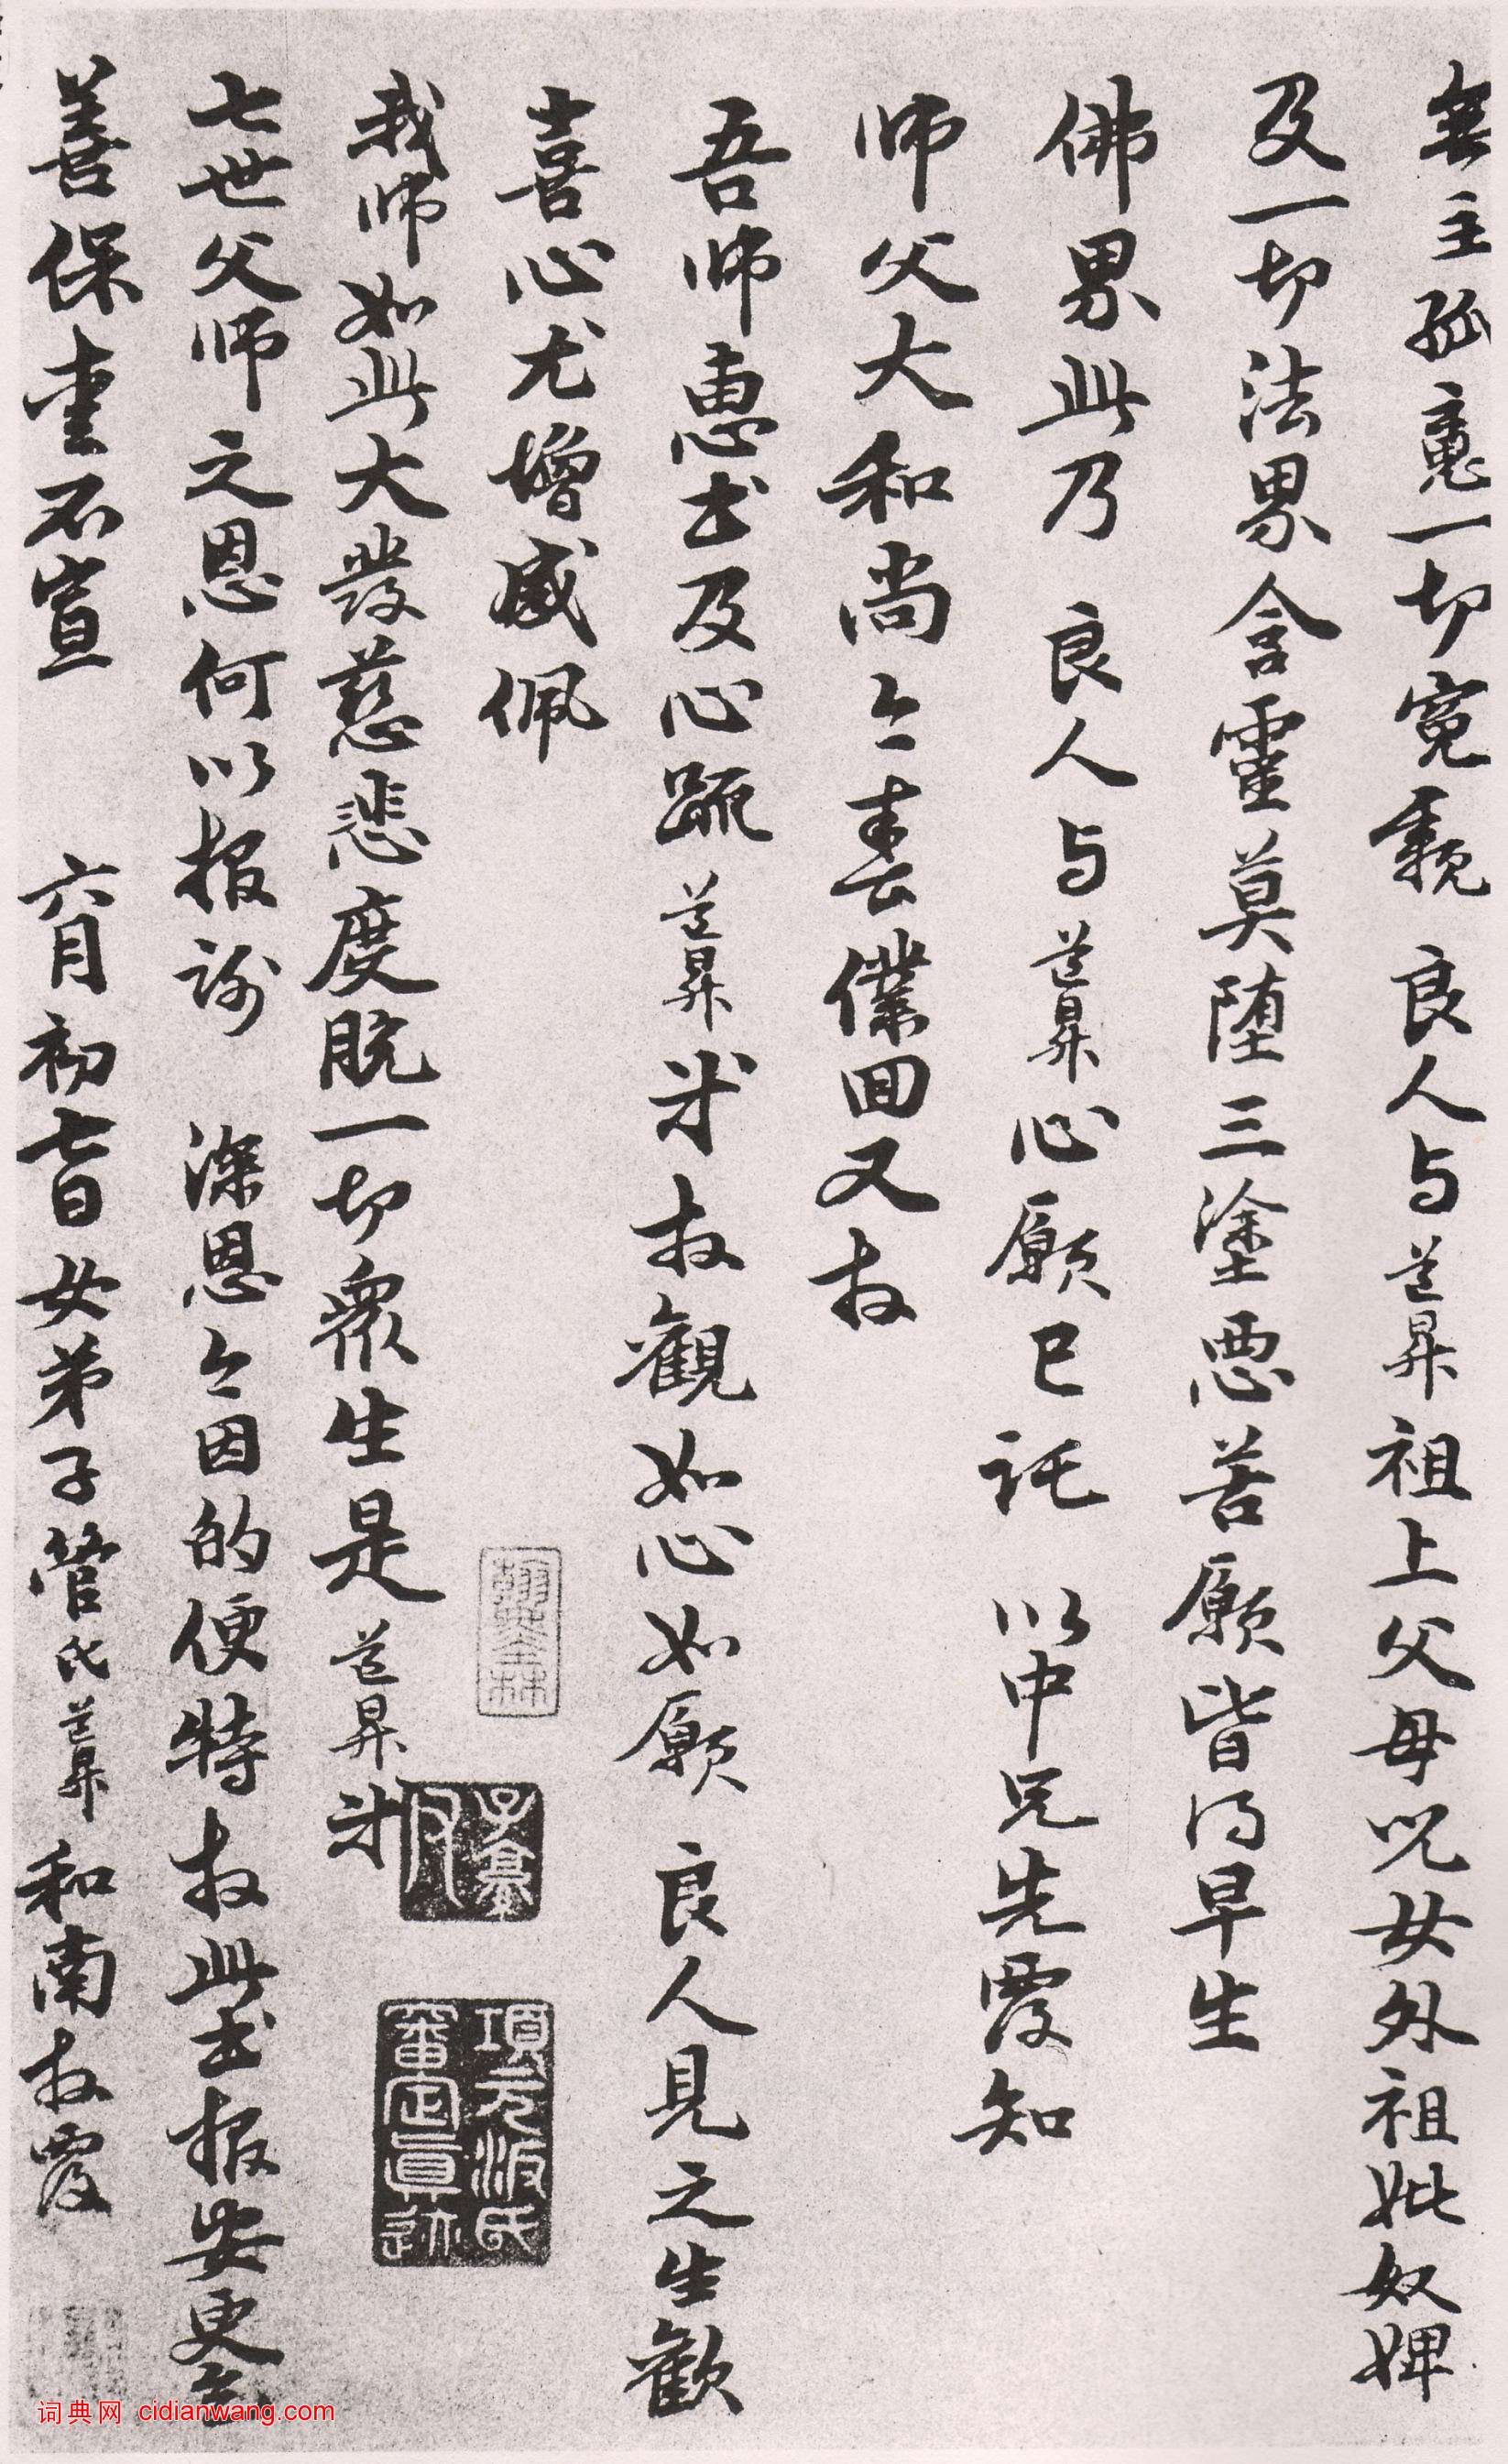 無主孤魂一切冤親 良人与道昇祖上父母児女外祖妣奴婢
及一切法界含靈莫墮三塗惡苦願皆得早生
佛界此乃 良人与道昇心願已託 以中兄先覆知
师父大和尚今春僕回又教
吾师惠书及心疏道昇来教觀如心如願 良人見之生歡
喜心尤增感佩
我师如此大發慈悲度脱一切眾生是道昇来
七世父师之恩何以报謝 深恩今因的便特教此书报安更乞
善保重不宣 六月初七日女弟子管氏道昇和南教覆
項元汴氏審定真跡
词典网 cidianwang.com